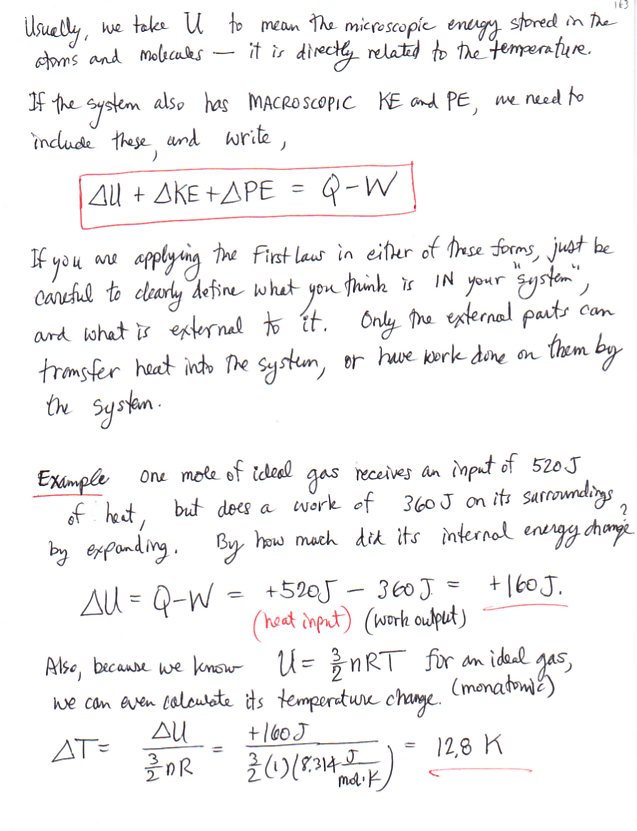 163
Usually, we take U to mean the microscopic energy stored in the
atoms and molecules — it is directly related to the temperature.
If the system also has MACROSCOPIC KE and PE, we need to
include these, and write,
ΔU + ΔKE + ΔPE = Q – W
If you are applying the First Law in either of these forms, just be
careful to clearly define what you think is IN your "system",
and what is external to it. Only the external parts can
transfer heat into the system, or have work done on them by
the system.
Example One mole of ideal gas receives an input of 520 J
of heat, but does a work of 360 J on its surroundings
by expanding. By how much did its internal energy change?
ΔU = Q – W = +520J – 360 J = +160 J.
(heat input) (work output)
Also, because we know U = 3/2 nRT for an ideal gas,
we can even calculate its temperature change. (monatomic)
ΔT = ΔU / (3/2 nR) = +160 J / (3/2 (1)(8.314 J/mol·K)) = 12.8 K